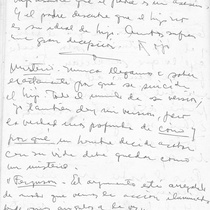 que el padre es un asesino.
Y el padre descubre que el hijo no
es su ideal de hijo. Ambos sufren
gran decepción.
Misterio: Nunca llegamos a saber
exactamente por qué se suicida
el hijo. Todo el mundo da su versión,
yo también doy mi visión, pero
la verdad más profunda de cómo y
por qué un hombre decide acabar
con su vida debe quedar como
un misterio.
Ferguson. El argumento está arreglado
de modo que veamos la acción